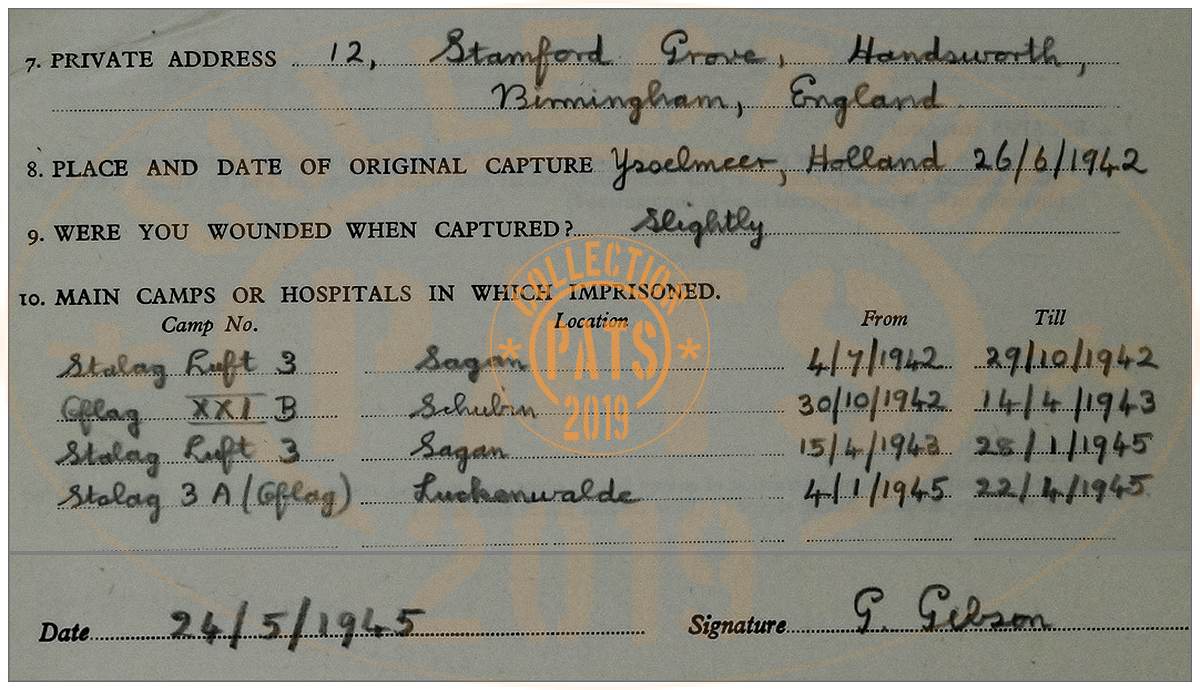 7. PRIVATE ADDRESS 12, Stamford Grove, Handsworth,
Birmingham, England
8. PLACE AND DATE OF ORIGINAL CAPTURE Ysselmeer, Holland 26/6/1942
9. WERE YOU WOUNDED WHEN CAPTURED? Slightly
10. MAIN CAMPS OR HOSPITALS IN WHICH IMPRISONED.
Camp No. Location From Till
Stalag Luft 3 Sagan 4/7/1942 29/10/1942
Oflag XXI B Schubin 30/10/1942 14/4/1943
Stalag Luft 3 Sagan 15/4/1943 28/1/1945
Stalag 3 A (Oflag) Luckenwalde 4/1/1945 22/4/1945
Date 24/5/1945 Signature G. Gibson
COLLECTION
PATS
2019